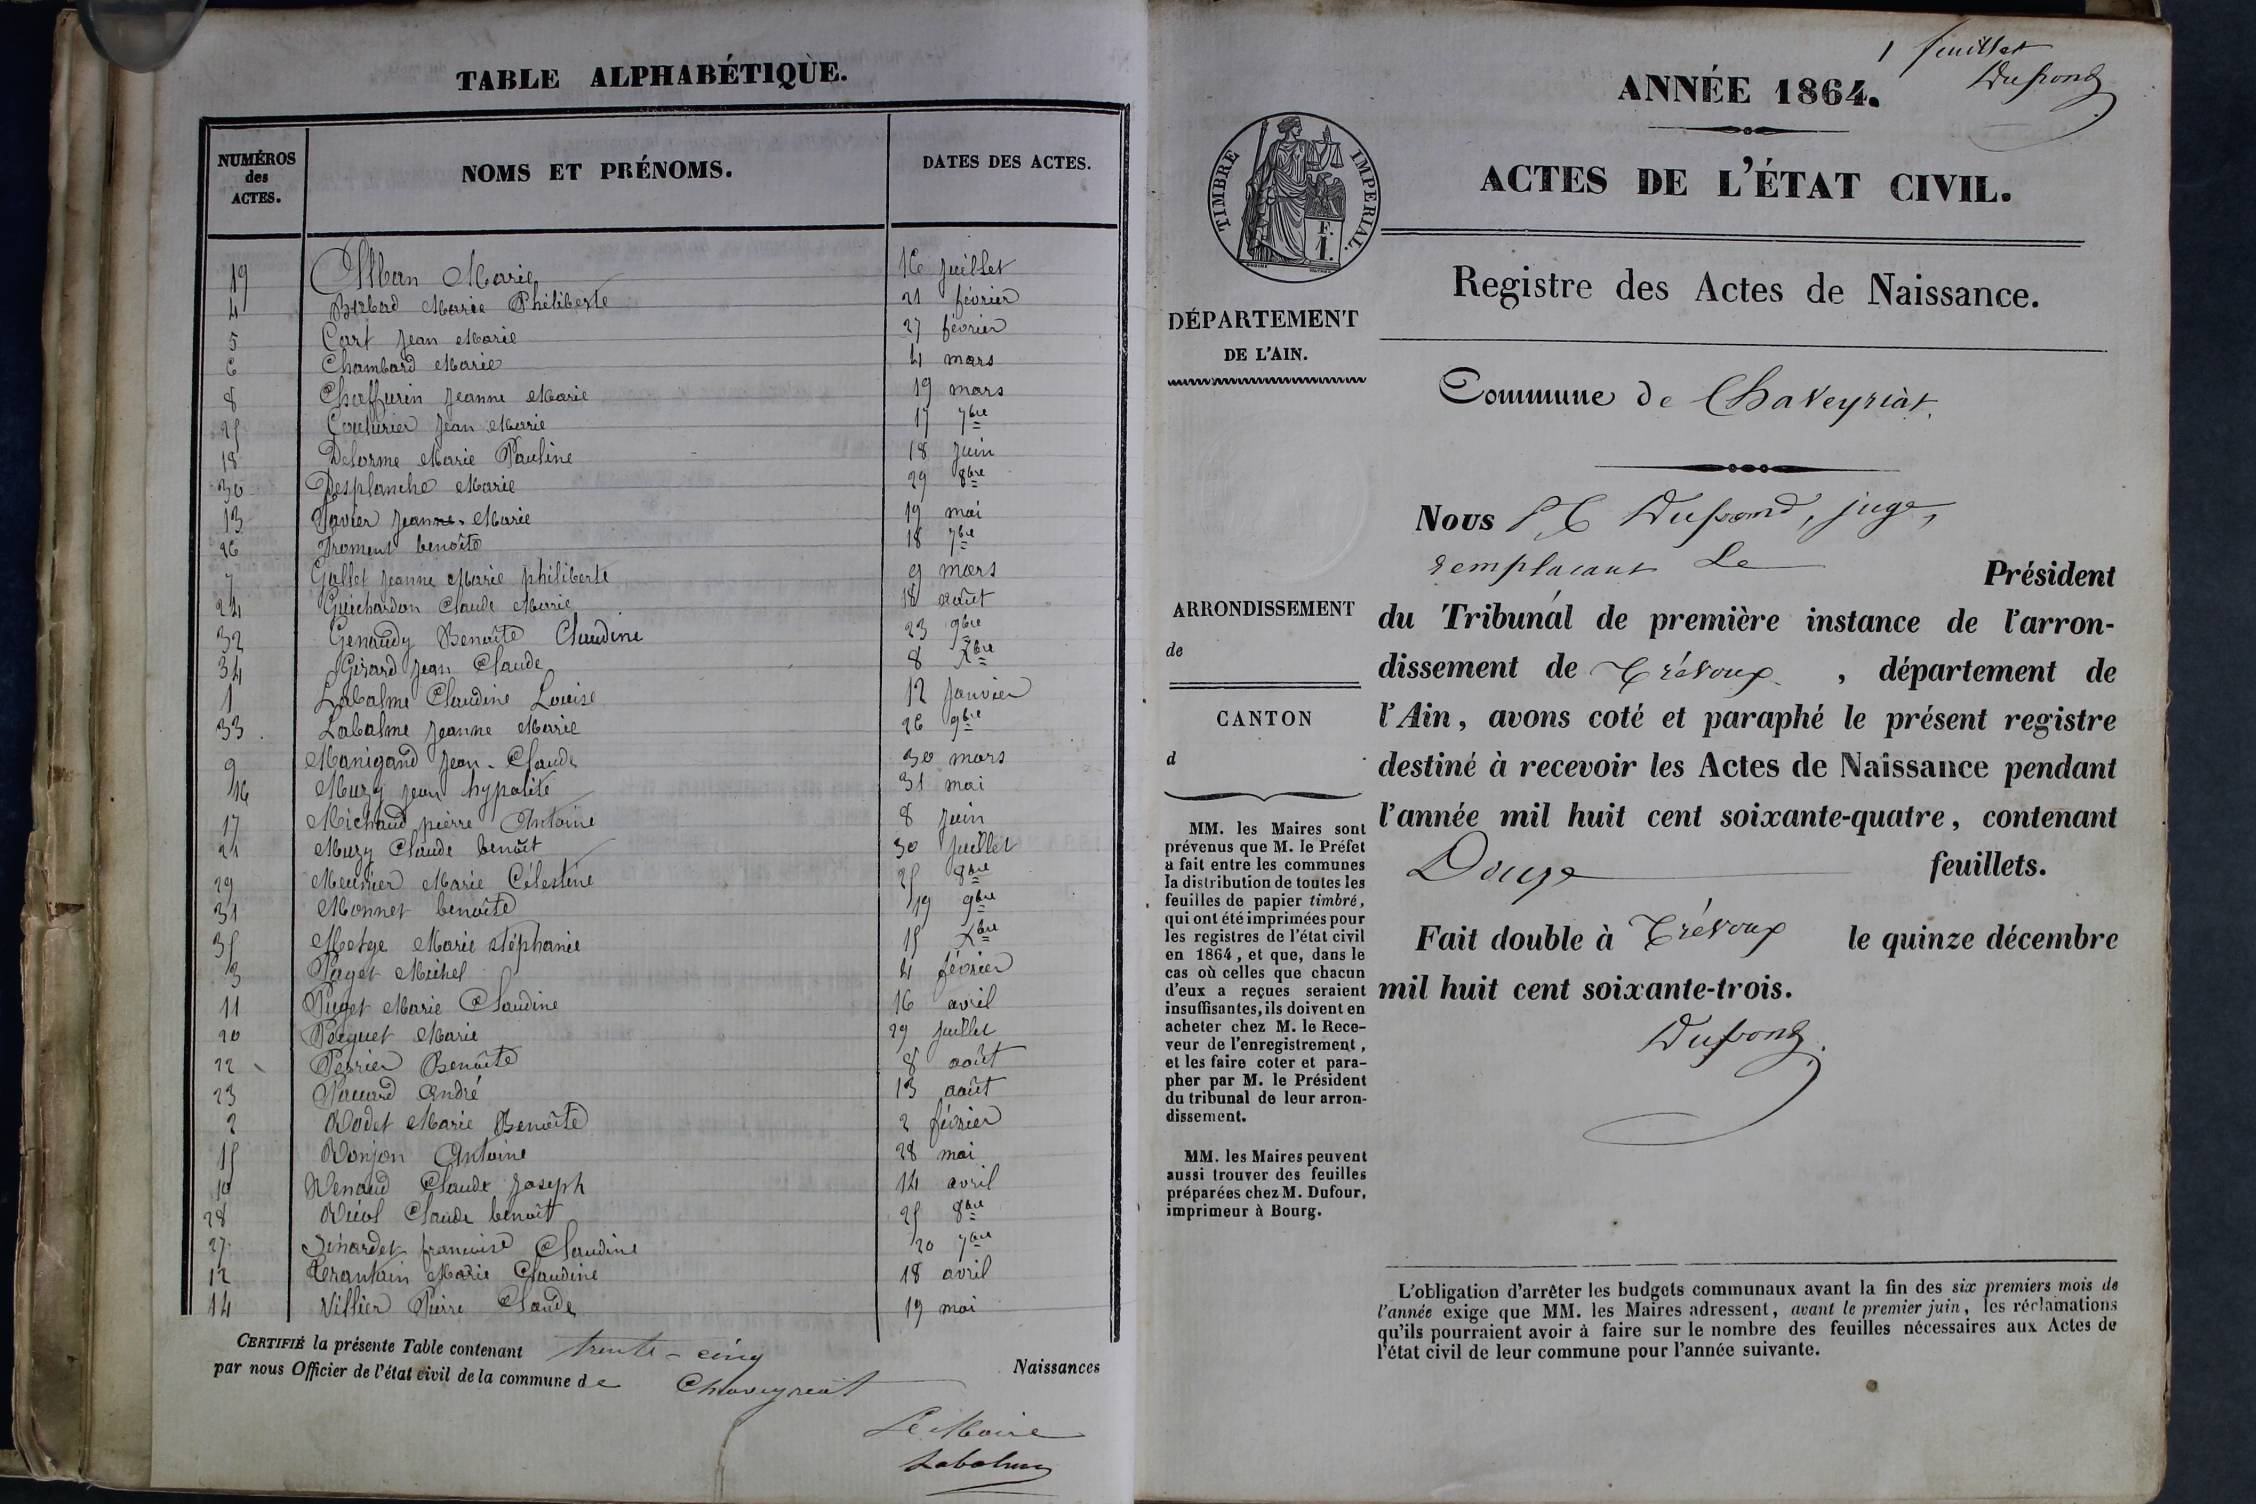 TABLE ALPHABÉTIQUE.
NUMÉROS des ACTES. NOMS ET PRÉNOMS. DATES DES ACTES.
19 Alban Marie 16 juillet
4 Marie Philiberte 21 février
5 Carf Jean Marie 27 février
6 Chambard Marie 4 mars
8 Chaffurin Jeanne Marie 19 mars
25 Couturier Jean Marie 17 7bre
18 Delorme Marie Pauline 18 juin
30 Desplanche Marie 29 8bre
13 Favier Jeanne Marie 19 mai
26 Froment benoîte 18 7bre
7 Gallet Jeanne Marie philiberte 9 mars
24 Guichardon Claude Marie 18 août
32 Genaudy Benoîte Claudine 23 9bre
34 Girard Jean Claude 8 Xbre
1 Labalme Claudine Louise 12 Janvier
33 Labalme Jeanne Marie 26 9bre
9 Manigand Jean-Claude 30 mars
16 Muzy Jean hypolite 31 mai
17 Michaud pierre Antoine 8 juin
21 Muzy Claude benoît 30 juillet
29 Meunier Marie Célestine 25 8bre
31 Monnet benoîte 19 9bre
35 Metge Marie stéphanie 15 Xbre
3 Paget Michel 4 février
11 Puget Marie Claudine 16 avril
20 Péquet Marie 29 juillet
22 Perrier Benoîte 8 août
23 Pauard André 13 août
2 Rodet Marie Benoîte 2 février
15 Ronjon Antoine 28 mai
10 Renaud Claude Joseph 14 avril
28 Claude benoît 25 8bre
27 Sénardet francoise Claudine 20 7bre
12 Trantain Marie Claudine 18 avril
14 Villier Pierre Claude 19 mai
CERTIFIÉ la présente Table contenant trente-cinq Naissances
par nous Officier de l'état civil de la commune de Chaveyriat
Le Maire
Labalme
1 feuillet
Dupond
ANNÉE 1864.
ACTES DE L'ÉTAT CIVIL.
TIMBRE IMPERIAL.
F.
1.
Registre des Actes de Naissance.
DÉPARTEMENT
DE L'AIN.
Commune de Chaveyriat.
Nous Dupond, juge,
remplacant Le Président
du Tribunal de première instance de l'arron-
dissement de Trévoux, département de
l'Ain, avons coté et paraphé le présent registre
destiné à recevoir les Actes de Naissance pendant
l'année mil huit cent soixante-quatre, contenant
Douze feuillets.
Fait double à Trévoux le quinze décembre
mil huit cent soixante-trois.
Dupond
ARRONDISSEMENT
de
CANTON
d
MM. les Maires sont
prévenus que M. le Préfet
a fait entre les communes
la distribution de toutes les
feuilles de papier timbré,
qui ont été imprimées pour
les registres de l'état civil
en 1864, et que, dans le
cas où celles que chacun
d'eux a reçues seraient
insuffisantes, ils doivent en
acheter chez M. le Rece-
veur de l'enregistrement,
et les faire coter et para-
pher par M. le Président
du tribunal de leur arron-
dissement.
MM. les Maires peuvent
aussi trouver des feuilles
préparées chez M. Dufour,
imprimeur à Bourg.
L'obligation d'arrêter les budgets communaux avant la fin des six premiers mois de
l'année exige que MM. les Maires adressent, avant le premier juin, les réclamations
qu'ils pourraient avoir à faire sur le nombre des feuilles nécessaires aux Actes de
l'état civil de leur commune pour l'année suivante.